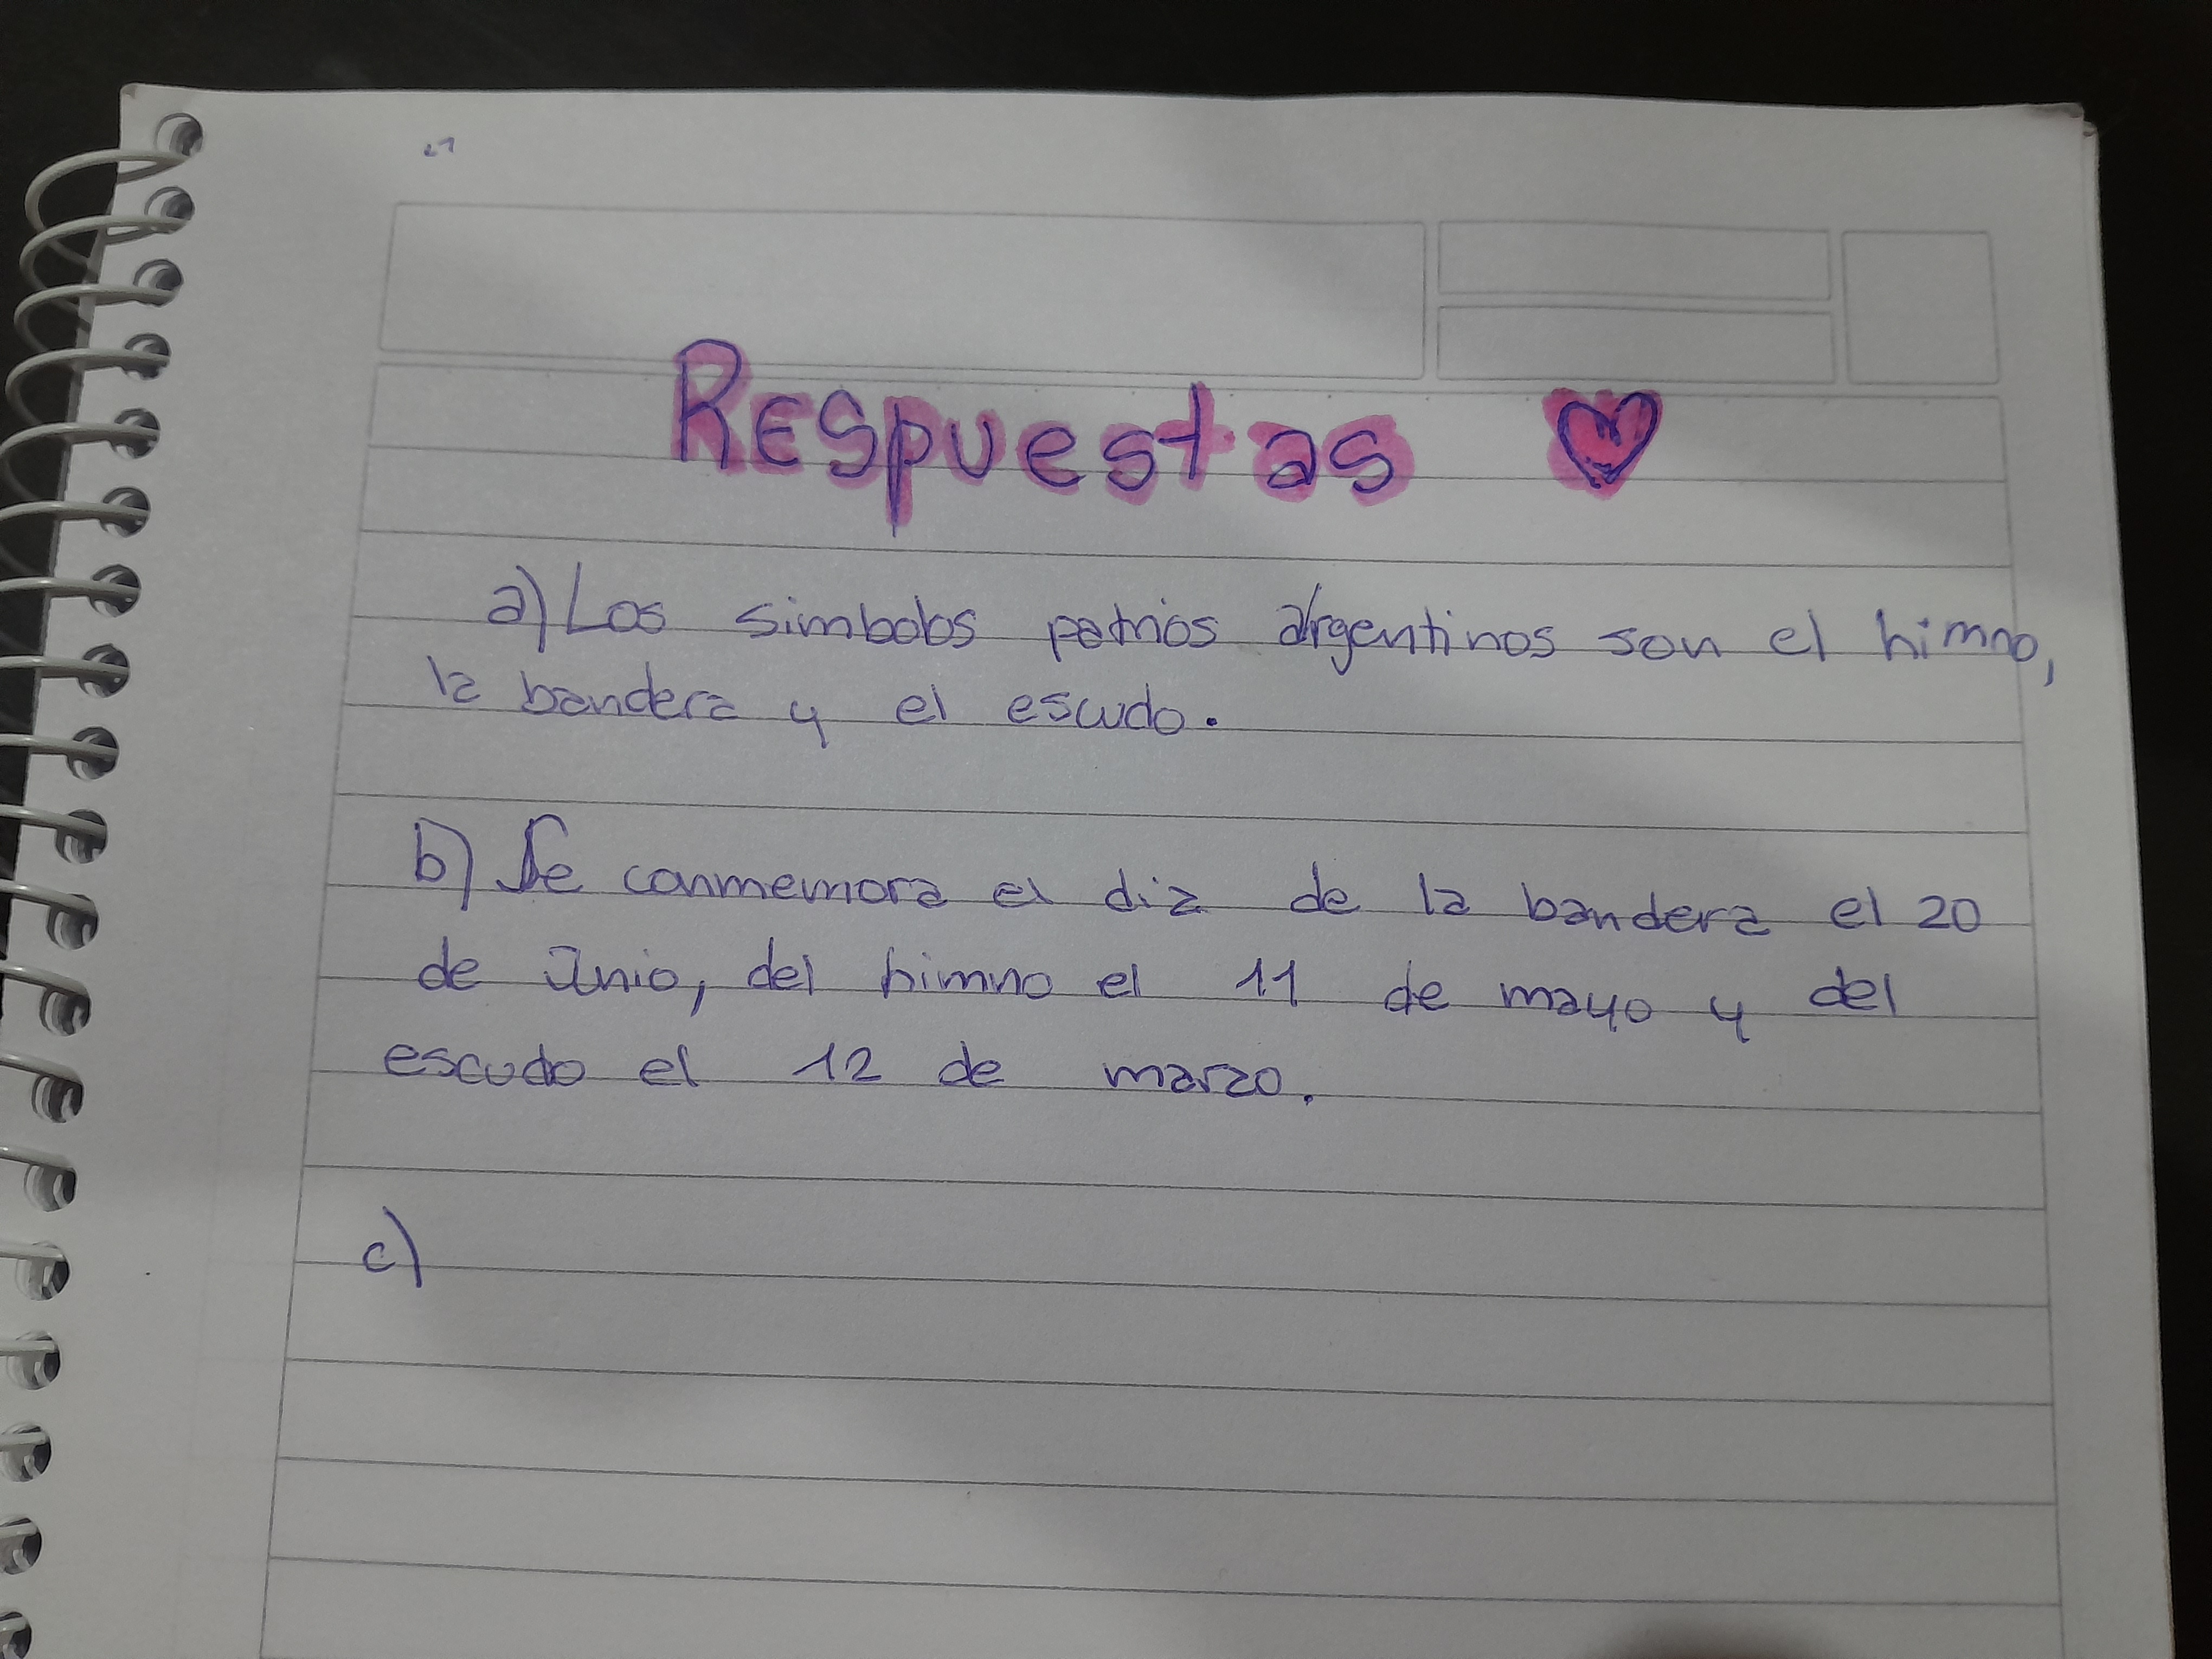 Respuestas
a) Los simbolos patrios argentinos son el himno,
la bandera y el escudo.
b) Se conmemora el dia de la bandera el 20
de Junio, del himno el 11 de mayo y del
escudo el 12 de marzo.
c)